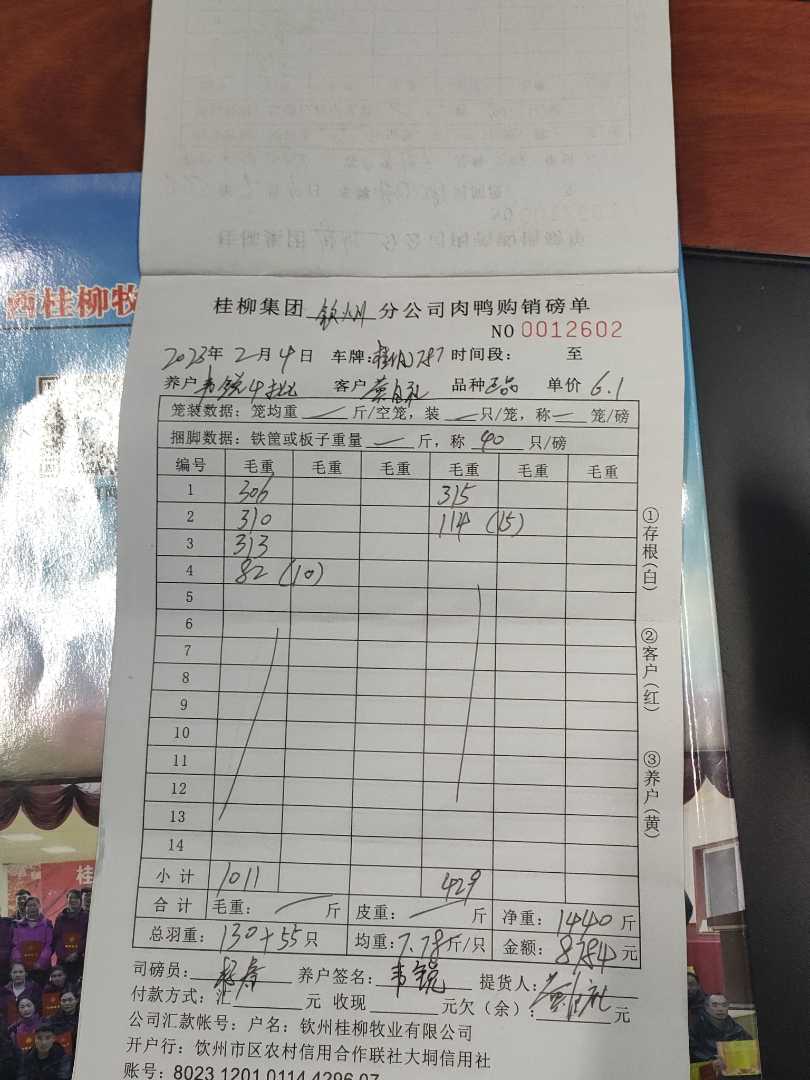 西桂柳牧
桂柳集团 钦州 分公司肉鸭购销磅单
NO 0012602
2023年2月4日 车牌: 787 时间段: 至
养户 韦锐4批 客户 品种 正品 单价 6.1
笼装数据: 笼均重 斤/空笼, 装 只/笼, 称 笼/磅
捆脚数据: 铁筐或板子重量 斤, 称 40 只/磅
编号 毛重 毛重 毛重 毛重 毛重 毛重
1 306 315
2 310 114 (15)
3 313
4 82 (10)
5
6
7
8
9
10
11
12
13
14
小计 1011 429
合计 毛重: 斤 皮重: 斤 净重: 1440 斤
总羽重: 130+55 只 均重: 7.78 斤/只 金额: 8784 元
司磅员: 养户签名: 韦锐 提货人:
付款方式: 汇 元 收现 元欠(余): 元
公司汇款帐号: 户名: 钦州桂柳牧业有限公司
开户行: 钦州市区农村信用合作联社大垌信用社
账号: 8023 1201 0114 4296 07
①存根(白)
②客户(红)
③养户(黄)
桂